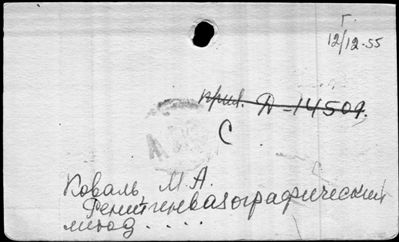 Г.
12/12-55
прил. Д-14509.
С
Коваль, М.А.
Рентгенвазографический
метод.....